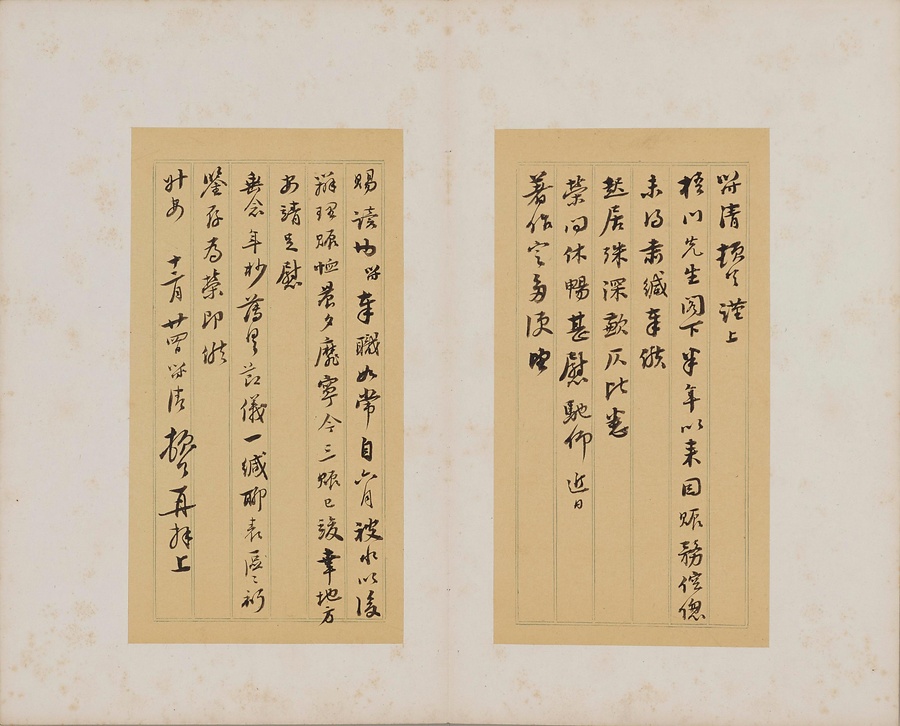 清頓首謹上
梧川先生閣下半年以來因賑務倥傯
未得肅緘奉候
起居殊深歉仄比惟
榮問休暢甚慰馳仰近日
著作定多便中
賜讀為奉職如常自六月被水以後
辦理賑恤晨夕靡寧今三賑已竣幸地方
安靖足慰
垂念年杪薄具菲儀一緘聊表區區祈
鑒存為荣即候
升安 十二月廿四日清頓首再拜上